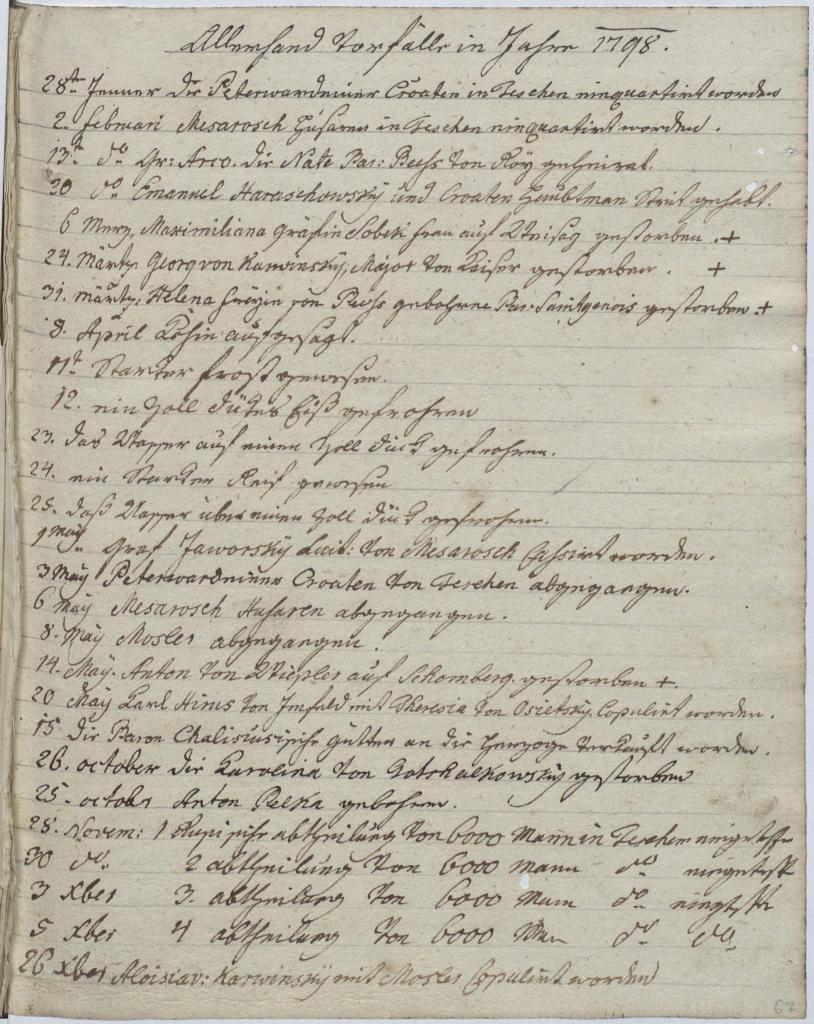 Allerhand Vorfälle in Jahre 1798.
28ten Jenner die Peterwardeiner Croaten in Teschen einquartirt worden
2. februari Mesarosch Husaren in Teschen einquartirt worden.
13t do Gr: Arco. die Nate Bar: Beess von Roy geheirat.
30 do Emanuel Haraschowský und Croaten Haubtman Strit gehabt.
6 Merz, Maximiliana Gräfin Sobeck frau auf gestorben. +
24. Märtz. Georg von Karwinský, Major von Kaiser gestorben. +
31. märtz: Helena freÿin von Beess gebohrne Bar: Saintgenois gestorben +
8. April ausgesagt.
11t Starker frost gewesen.
12. ein Zoll dückes Eiß gefrohren
23. das Wasser auf einen Zoll dück gefrohren.
24. ein Starker Reif gewesen
25. daß Wasser über einen Zoll dück gefrohren.
1 maÿ Graf Jaworskÿ Leit: von Mesarosch Cassirt worden.
3 Maÿ Peterwardeiner Croaten von Teschen abgegangen.
6 maÿ Mesarosch Husaren abgegangen.
8. Maÿ Mosler abgegangen.
14. Maÿ. Anton von auf Schomberg gestorben +.
20 Maÿ Karl Hirus von mit Theresia von Osietskÿ Copulirt worden.
15 die Baron Chalisiusische gütter an die Herzoge verkauft worden.
26. october die Karolina von Gotschalkowskÿ gestorben
25. octobr Anton Pelka gebohren.
28. Novem: 1 Rusische abtheilung von 6000 Mann in Teschen eingetrfe
30 do 2 abtheilung von 6000 mann do eingetrft
3 xber 3. abtheilung von 6000 Mann do eingtrft
5 xber 4 abtheilung von 6000 Man do do
26 xber Aloisia v: Karwinskÿ mit Mosler Copulirt worden
62